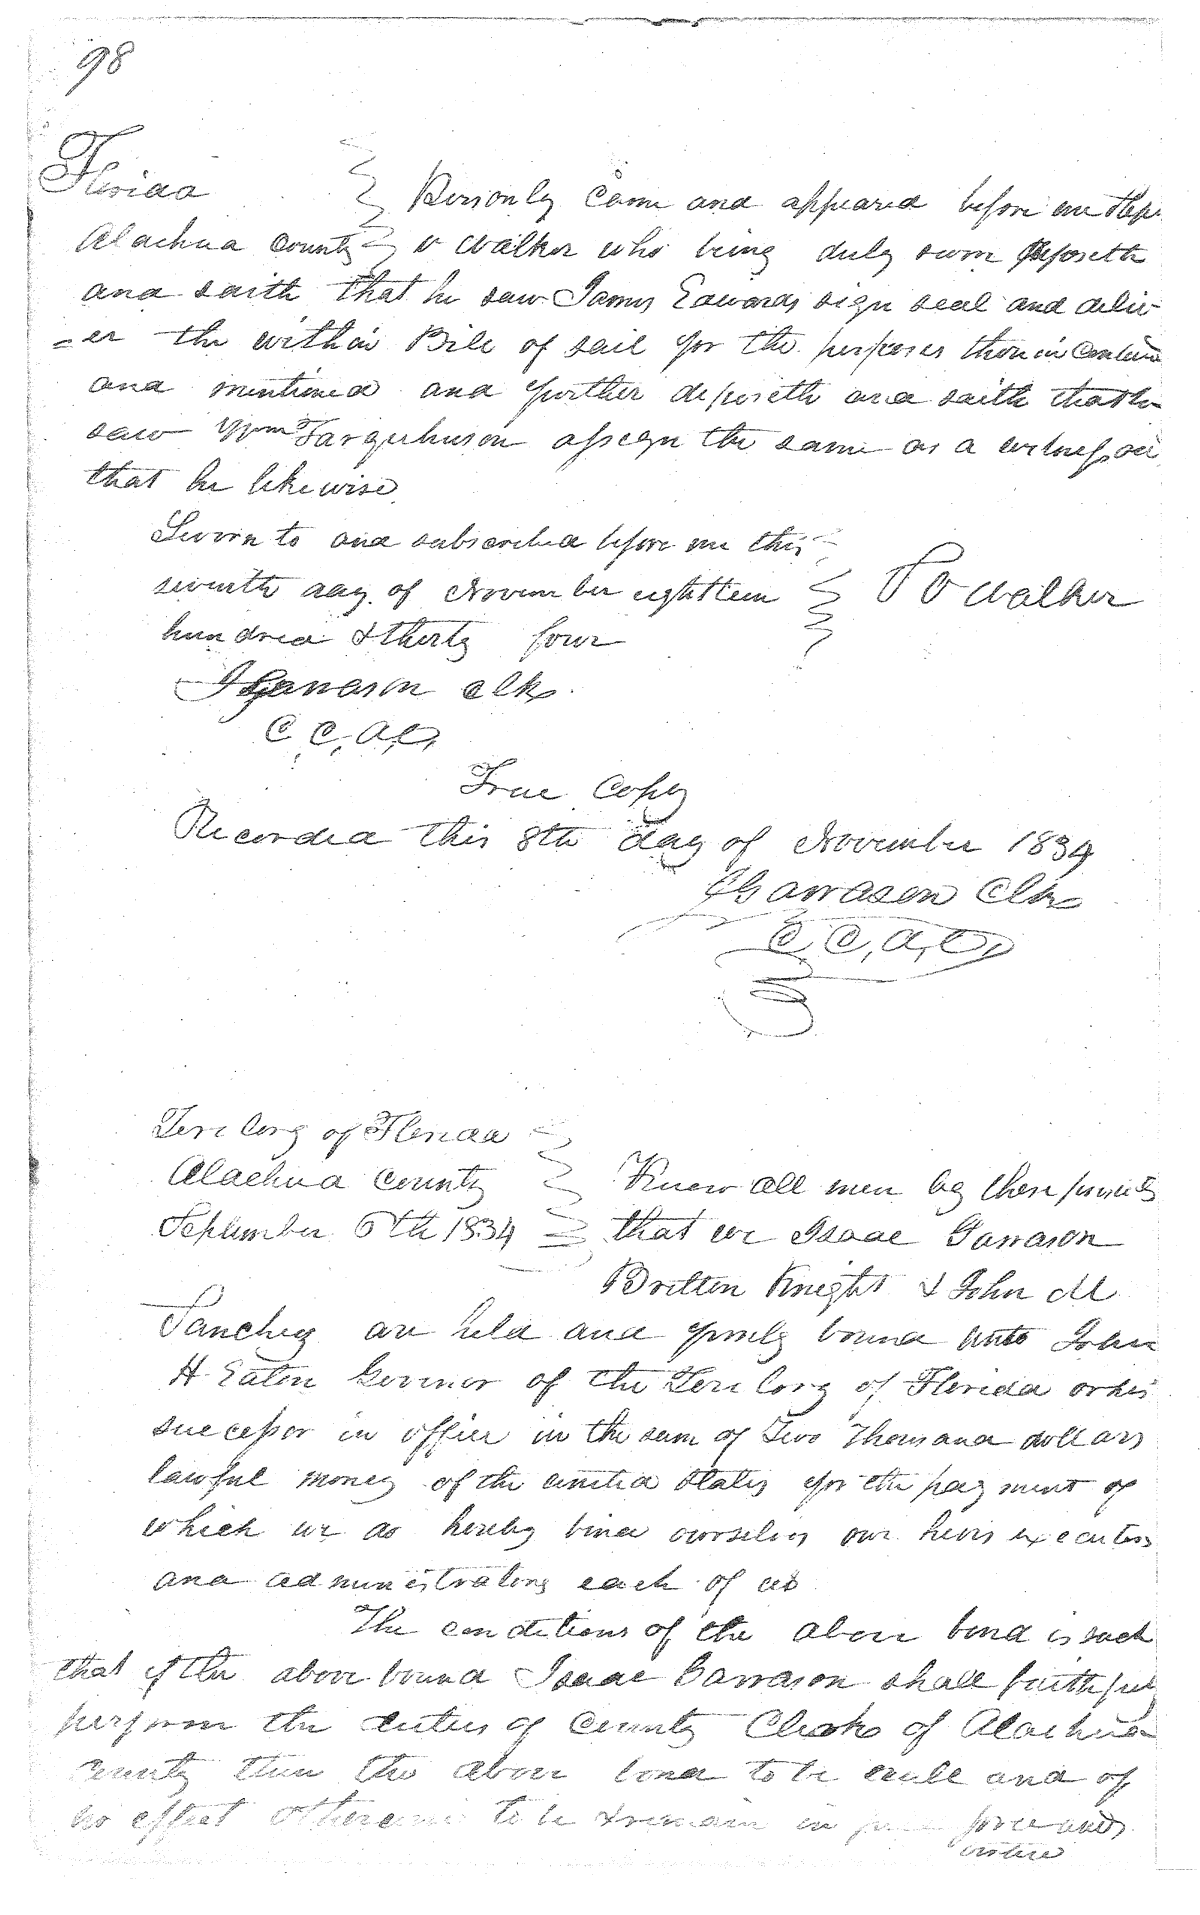 98
Florida
Personly Came and appeared before me
Alachua County
v Walker who being duly sworn deposeth
and saith that he saw James Edwards sign seal and deliv-
-er the within Bill of sail for the purposes therein
and mentioned and further deposeth and saith that he
saw Wm Farguhuson assign the same as a witness and
that he likewise
Sworn to and subscribed before me this
seventh day of November eighteen
P V Walker
hundred & thirty four
I Garrason Clk
C. C, A, C,
True Copy
Recorded this 8th day of November 1834
I Garrason Clk
C C, A, C,
Teritory of Florida
Alachua County
Know all men by these presents
September 6th 1834
that we Isaac Garrason
Britten Knight & John M
Sanchez are held and firmly bound unto John
H Eaton Govenor of the Teritory of Florida or his
successor in office in the sum of Two Thousand dollars
lawful money of the united states for the payment of
which we do hereby bind ourselves our heirs executors
and administrators each of us
The conditions of the above bond is such
that if the above bound Isaac Garrason shall faithful
perform the duties of County Clerk of Alachua
County then the above bond to be null and of
no effect otherwise to be & remain in full force and
virtue